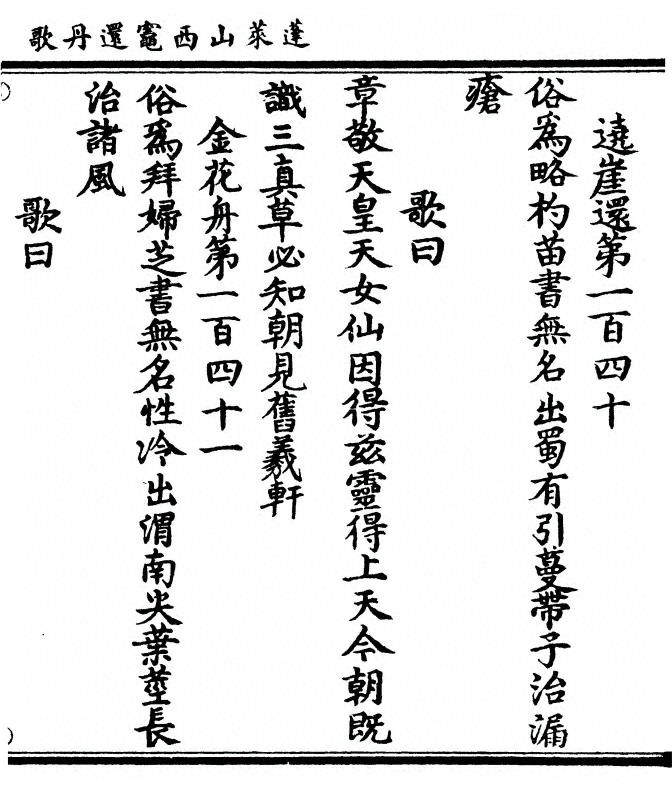 蓬萊山西竈還丹歌
遶崖還第一百四十
俗爲略杓苗書無名出蜀有引蔓帶子治漏
瘡
歌曰
章敬天皇天女仙因得兹靈得上天今朝既
識三真草必知朝見舊羲軒
金花舟第一百四十一
俗爲拜婦芝書無名性冷出渭南尖葉莖長
治諸風
歌曰